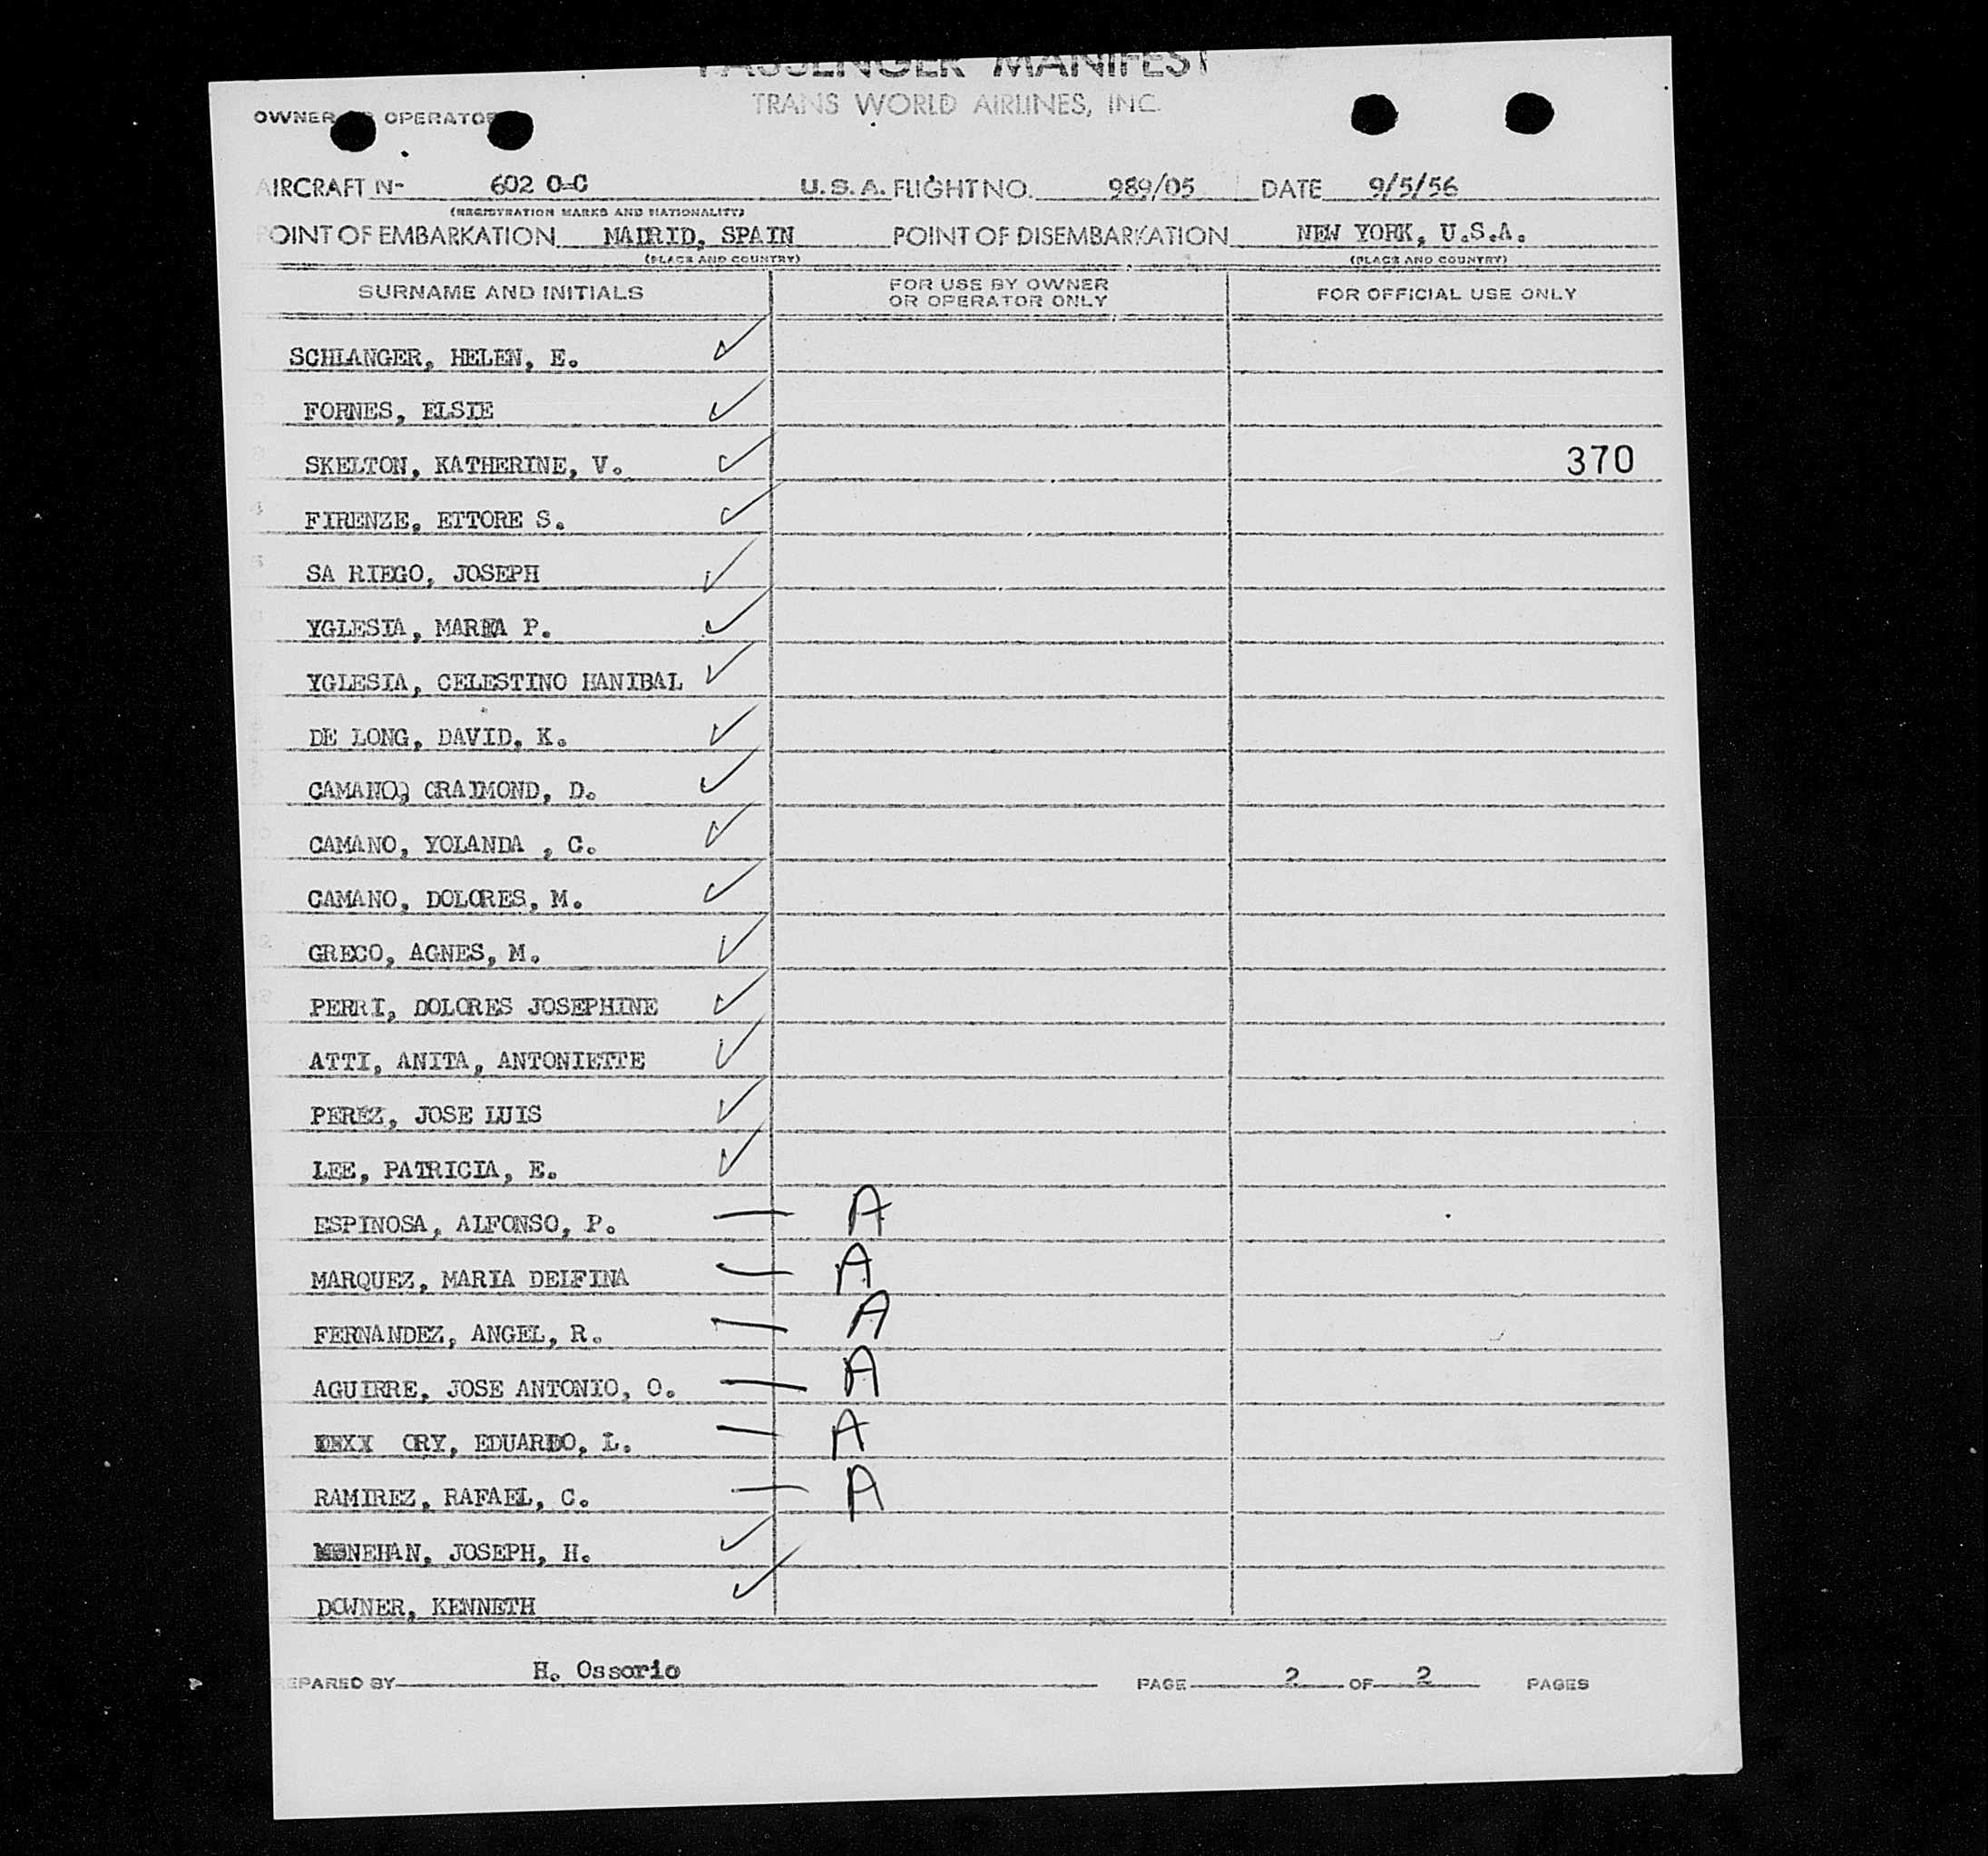 PASSENGER MANIFEST
TRANS WORLD AIRLINES, INC.
OWNER OPERATOR
AIRCRAFT N- 602 0-C U.S.A. FLIGHT NO. 989/05 DATE 9/5/56
(REGISTRATION MARKS AND NATIONALITY)
POINT OF EMBARKATION MADRID, SPAIN POINT OF DISEMBARKATION NEW YORK, U.S.A.
(PLACE AND COUNTRY) (PLACE AND COUNTRY)
SURNAME AND INITIALS FOR USE BY OWNER OR OPERATOR ONLY FOR OFFICIAL USE ONLY
SCHLANGER, HELEN, E.
FORNES, ELSIE
SKELTON, KATHERINE, V. 370
FIRENZE, ETTORE S.
SA RIEGO, JOSEPH
YGLESIA, MARIA P.
YGLESIA, CELESTINO HANIBAL
DE LONG, DAVID, K.
CAMANO, CRAIMOND, D.
CAMANO, YOLANDA , C.
CAMANO, DOLORES, M.
GRECO, AGNES, M.
PERRI, DOLORES JOSEPHINE
ATTI, ANITA, ANTONIETTE
PEREZ, JOSE LUIS
LEE, PATRICIA, E.
ESPINOSA, ALFONSO, P. — A
MARQUEZ, MARIA DELFINA — A
FERNANDEZ, ANGEL, R. — A
AGUIRRE, JOSE ANTONIO, O. — A
ORY, EDUARDO, L. — A
RAMIREZ, RAFAEL, C. — A
MONEHAN, JOSEPH, H.
DOWNER, KENNETH
PREPARED BY H. Ossorio PAGE 2 OF 2 PAGES